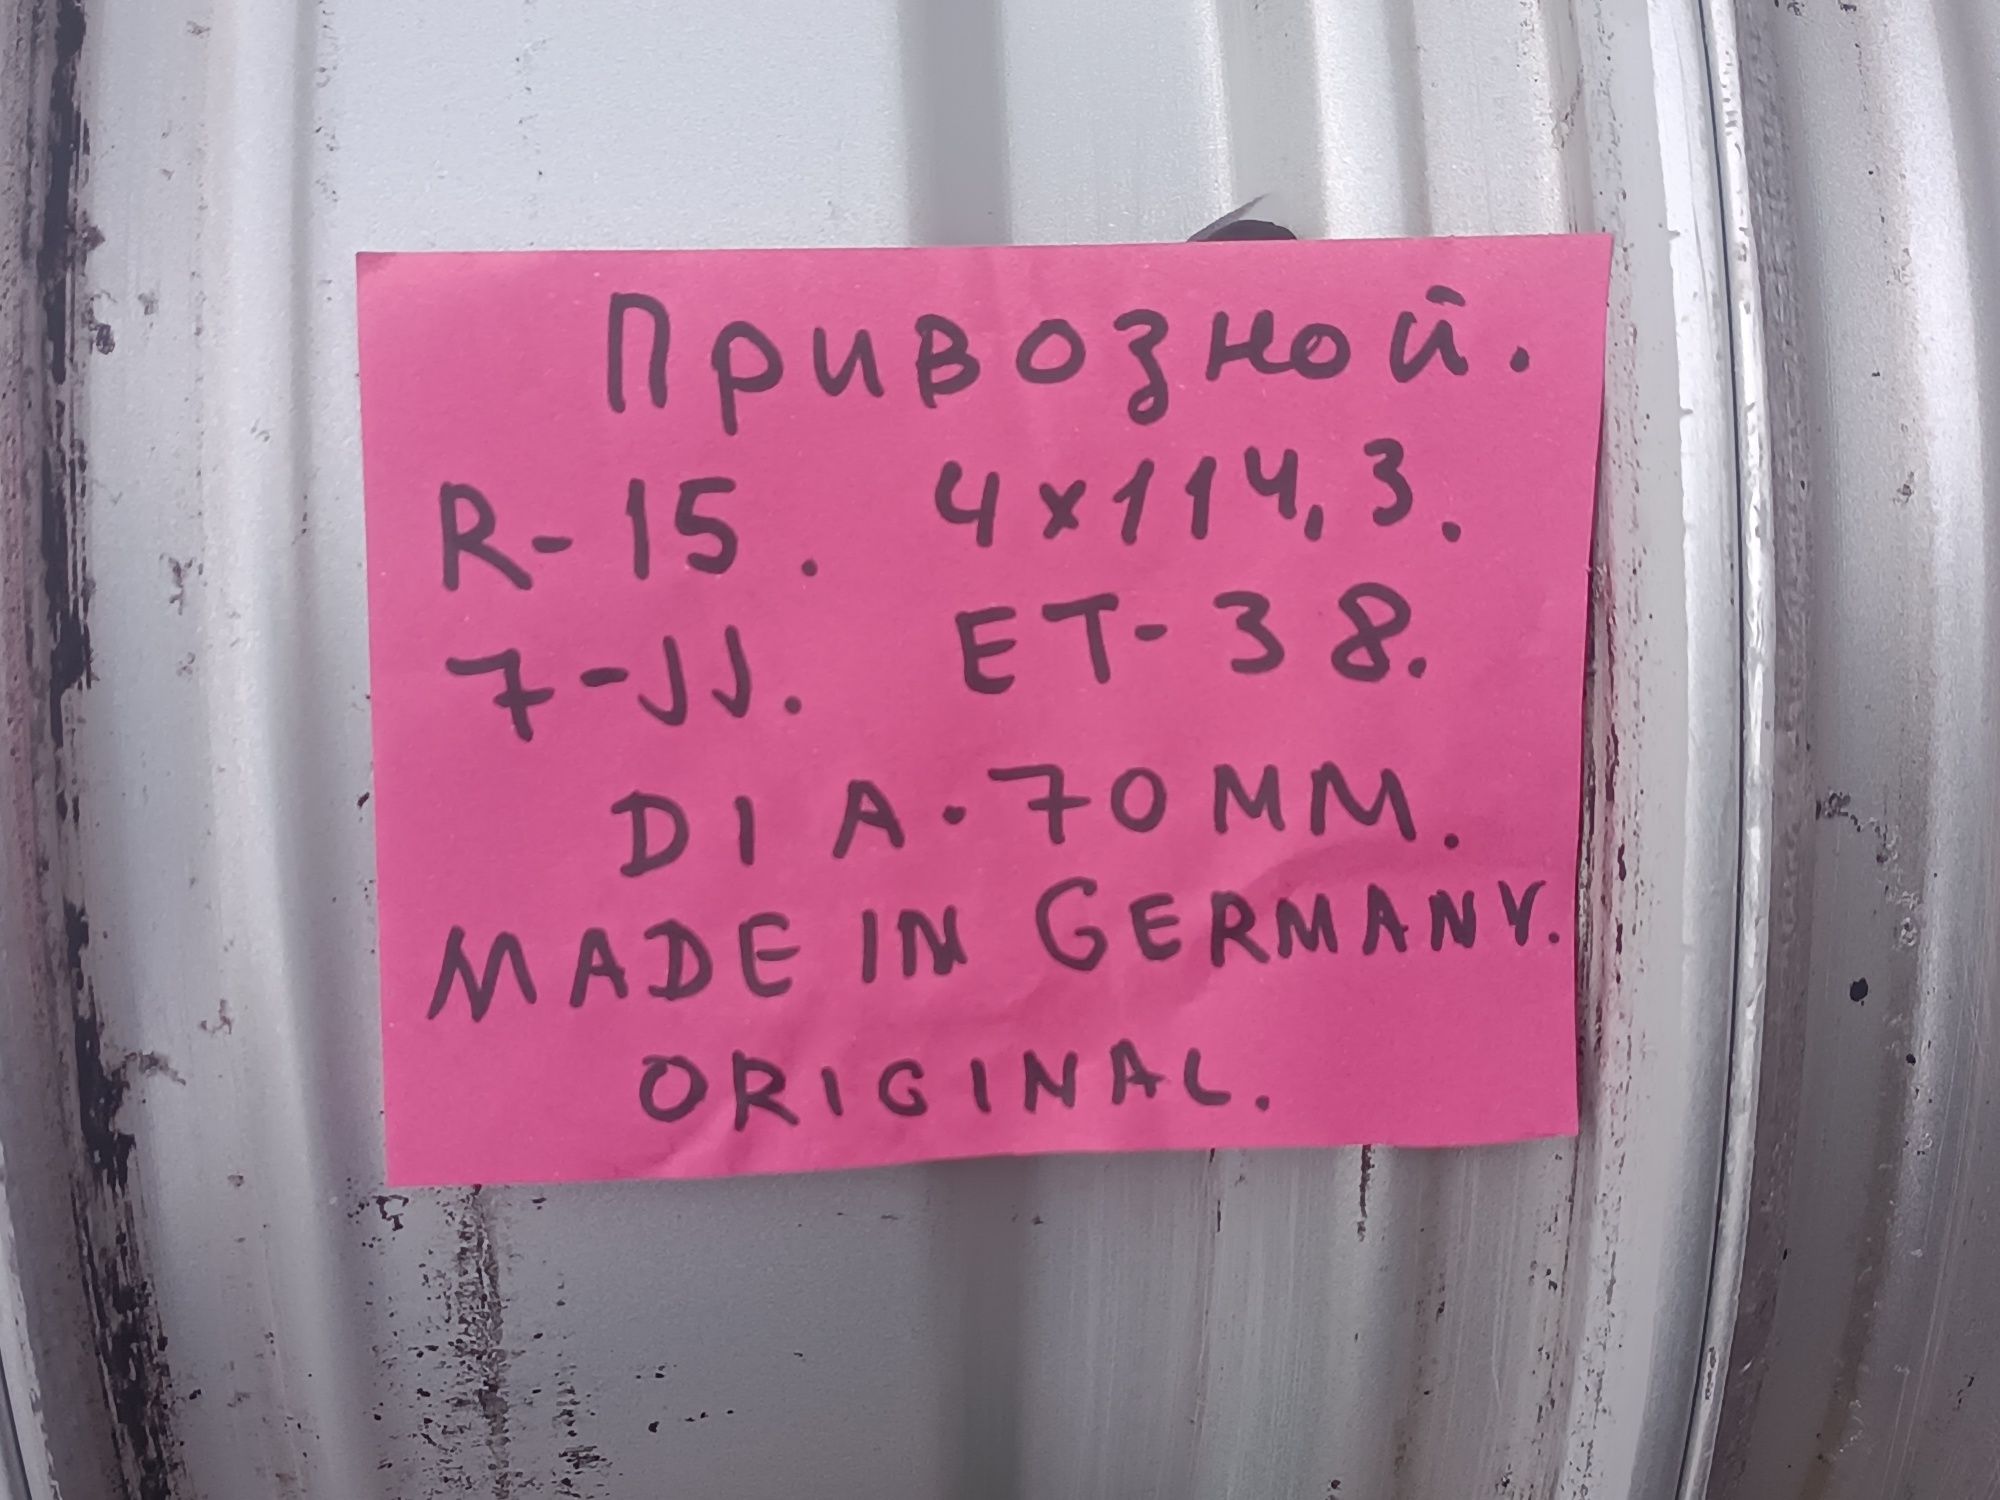 Привозной.
R-15. 4x114,3.
7-JJ. ET-38.
DIA.70MM.
MADE IN GERMANY.
ORIGINAL.